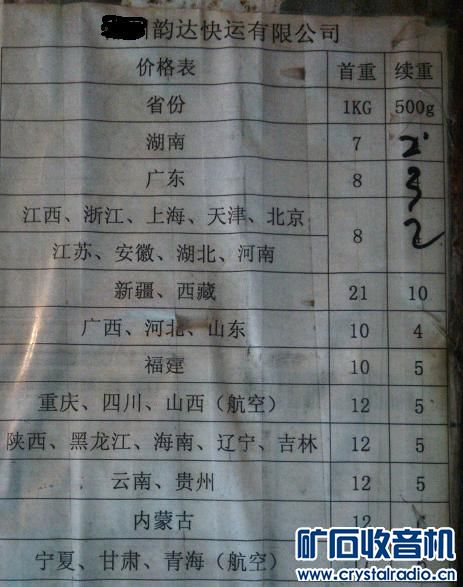 韵达快运有限公司
价格表 首重 续重
省份 1KG 500g
湖南 7 2
广东 8 3
江西、浙江、上海、天津、北京
江苏、安徽、湖北、河南 8 2
新疆、西藏 21 10
广西、河北、山东 10 4
福建 10 5
重庆、四川、山西（航空） 12 5
陕西、黑龙江、海南、辽宁、吉林 12 5
云南、贵州 12 5
内蒙古 12
宁夏、甘肃、青海（航空）
矿石收音机
www.crystalradio.cn